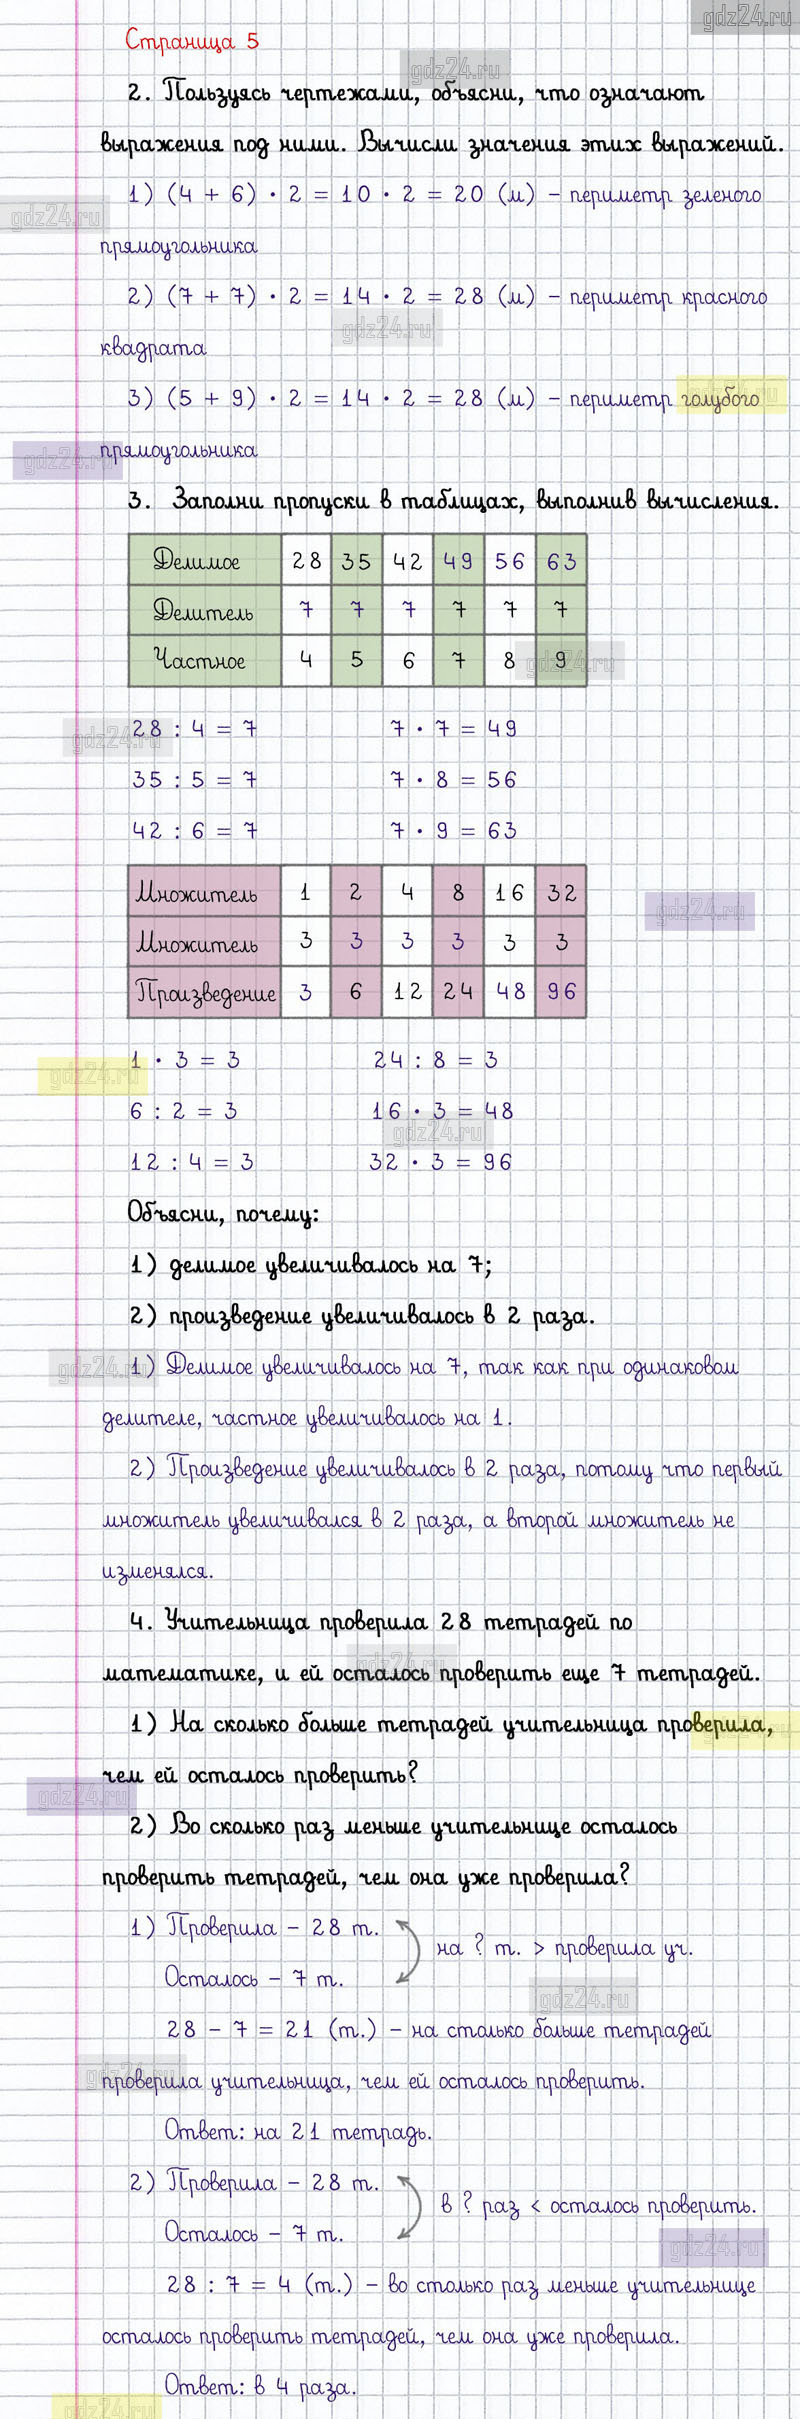 gdz24.ru
Страница 5
gdz24.ru
2. Пользуясь чертежами, объясни, что означают
выражения под ними. Вычисли значения этих выражений.
1) (4 + 6) · 2 = 10 · 2 = 20 (м) – периметр зеленого
gdz24.ru
прямоугольника
2) (7 + 7) · 2 = 14 · 2 = 28 (м) – периметр красного
gdz24.ru
квадрата
3) (5 + 9) · 2 = 14 · 2 = 28 (м) – периметр голубого
gdz24.ru
прямоугольника
gdz24.ru
3. Заполни пропуски в таблицах, выполнив вычисления.
Делимое 28 35 42 49 56 63
Делитель 7 7 7 7 7 7
Частное 4 5 6 7 8 9
gdz24.ru
28 : 4 = 7 7 · 7 = 49
gdz24.ru
35 : 5 = 7 7 · 8 = 56
42 : 6 = 7 7 · 9 = 63
Множитель 1 2 4 8 16 32
gdz24.ru
Множитель 3 3 3 3 3 3
Произведение 3 6 12 24 48 96
1 · 3 = 3 24 : 8 = 3
gdz24.ru
6 : 2 = 3 16 · 3 = 48
gdz24.ru
12 : 4 = 3 32 · 3 = 96
Объясни, почему:
1) делимое увеличивалось на 7;
2) произведение увеличивалось в 2 раза.
gdz24.ru
1) Делимое увеличивалось на 7, так как при одинаковом
делителе, частное увеличивалось на 1.
2) Произведение увеличивалось в 2 раза, потому что первый
множитель увеличивался в 2 раза, а второй множитель не
изменялся.
4. Учительница проверила 28 тетрадей по
gdz24.ru
математике, и ей осталось проверить еще 7 тетрадей.
1) На сколько больше тетрадей учительница проверила,
gdz24.ru
чем ей осталось проверить?
gdz24.ru
2) Во сколько раз меньше учительнице осталось
проверить тетрадей, чем она уже проверила?
1) Проверила – 28 т.
на ? т. > проверила уч.
Осталось – 7 т.
gdz24.ru
28 – 7 = 21 (т.) – на столько больше тетрадей
gdz24.ru
проверила учительница, чем ей осталось проверить.
Ответ: на 21 тетрадь.
2) Проверила – 28 т.
в ? раз < осталось проверить.
Осталось – 7 т.
gdz24.ru
28 : 7 = 4 (т.) – во столько раз меньше учительнице
осталось проверить тетрадей, чем она уже проверила.
Ответ: в 4 раза.
gdz24.ru